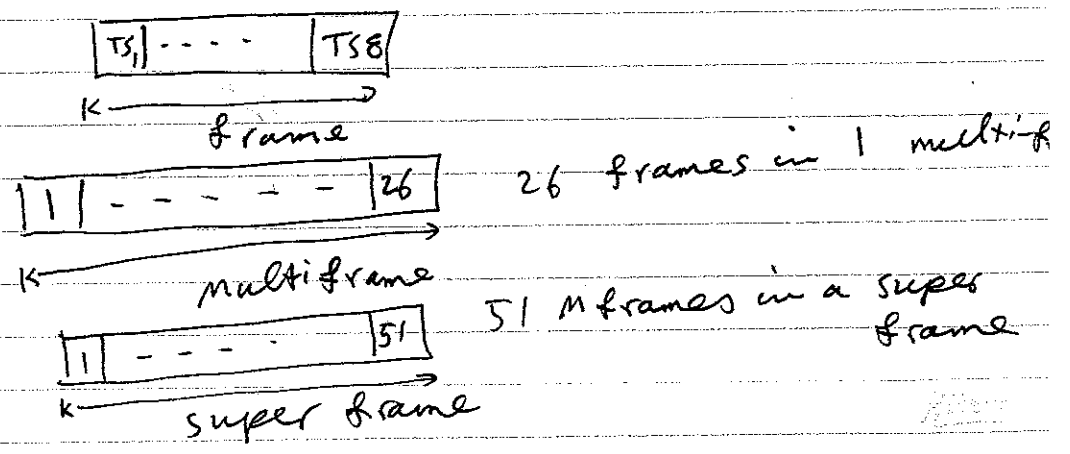 TS1 - - - - TS8
frame
1 - - - - - 26 26 frames in 1 multi-f
Multiframe
1 - - - - 51 51 Mframes in a super
frame
super frame